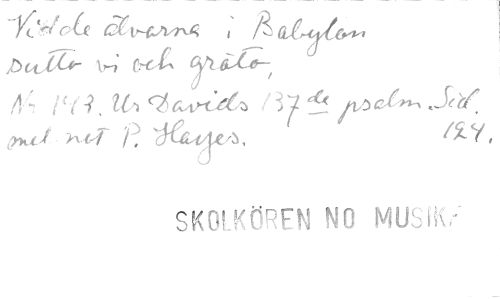 Vid de älvarna i Babylon
sutto vi och gräto,
Nr 143. Ur Davids 137de psalm. Sid.
mel. not P. Hayes. 124.
SKOLKÖREN NO MUSIKA